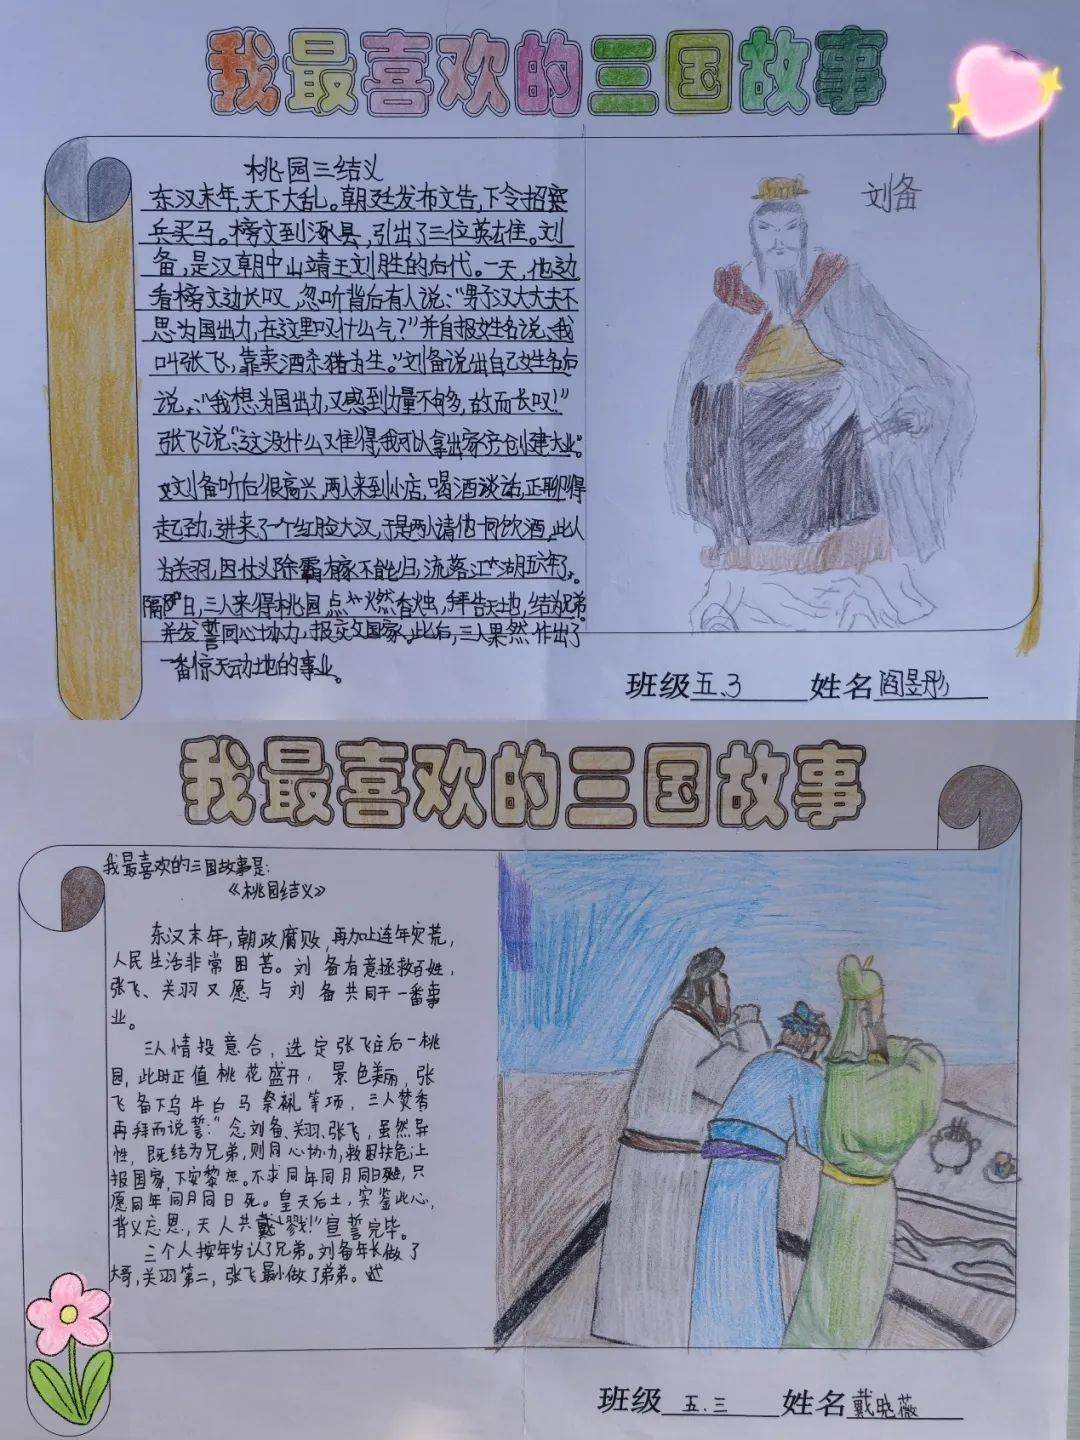 我最喜欢的三国故事
桃园三结义
东汉末年,天下大乱。朝廷发布文告,下令招
兵买马。榜文到涿县,引出了三位英雄。刘
备,是汉朝中山靖王刘胜的后代。一天,他边
看榜文边长叹,忽听背后有人说:“男子汉大丈夫不
思为国出力,在这里叹什么气?”并自报姓名说:“我
叫张飞,靠卖酒杀猪为生。”刘备说出自己姓名后
说:“我想为国出力,又感到力量不够,故而长叹!”
张飞说:“这没什么难得,我可以拿出家产创建大业。”
刘备听后很高兴,两人来到小店,喝酒谈话,正聊得
起劲,进来了一个红脸大汉,于是两人请他一同饮酒。此人
为关羽,因仗义除霸有家不能归,流落江湖五六年了。
隔日,三人来得桃园,点燃香烛,拜告天地,结为兄弟。
并发誓同心协力,报效国家。此后,三人果然作出了
一番惊天动地的事业。
刘备
班级五.3 姓名阎昱彤
我最喜欢的三国故事
我最喜欢的三国故事是:
《桃园结义》
东汉末年,朝政腐败,再加上连年灾荒,
人民生活非常困苦。刘备有意拯救百姓,
张飞、关羽又愿与刘备共同干一番事
业。
三人情投意合,选定张飞庄后一桃
园,此时正值桃花盛开,景色美丽,张
飞备下乌牛白马祭礼等项,三人焚香
再拜而说誓:“念刘备、关羽、张飞,虽然异
性,既结为兄弟,则同心协力,救困扶危;上
报国家,下安黎庶。不求同年同月同日生,只
愿同年同月同日死。皇天后土,实鉴此心,
背义忘恩,天人共戮!”宣誓完毕。
三个人按年岁认了兄弟。刘备年长做了
大哥,关羽第二,张飞最小做了弟弟。
班级五.三 姓名戴晓薇